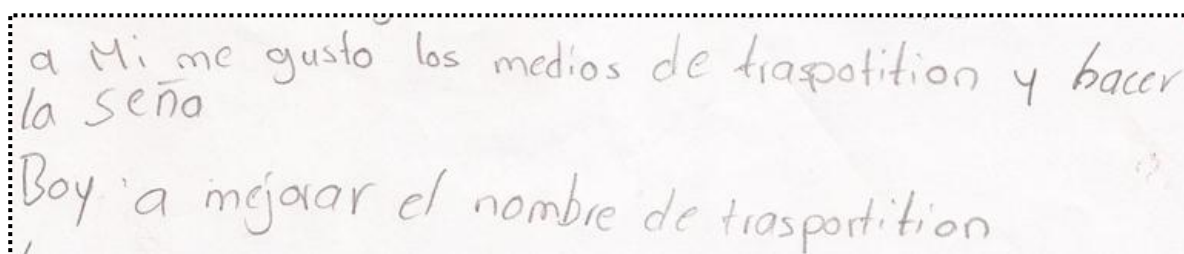 a Mi me gusto los medios de traspotition y hacer
la seña
Boy a mejorar el nombre de trasportition